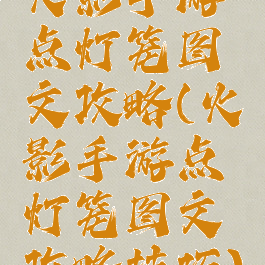 火影手游
点灯笼图
文攻略(火
影手游点
灯笼图文
攻略技巧)